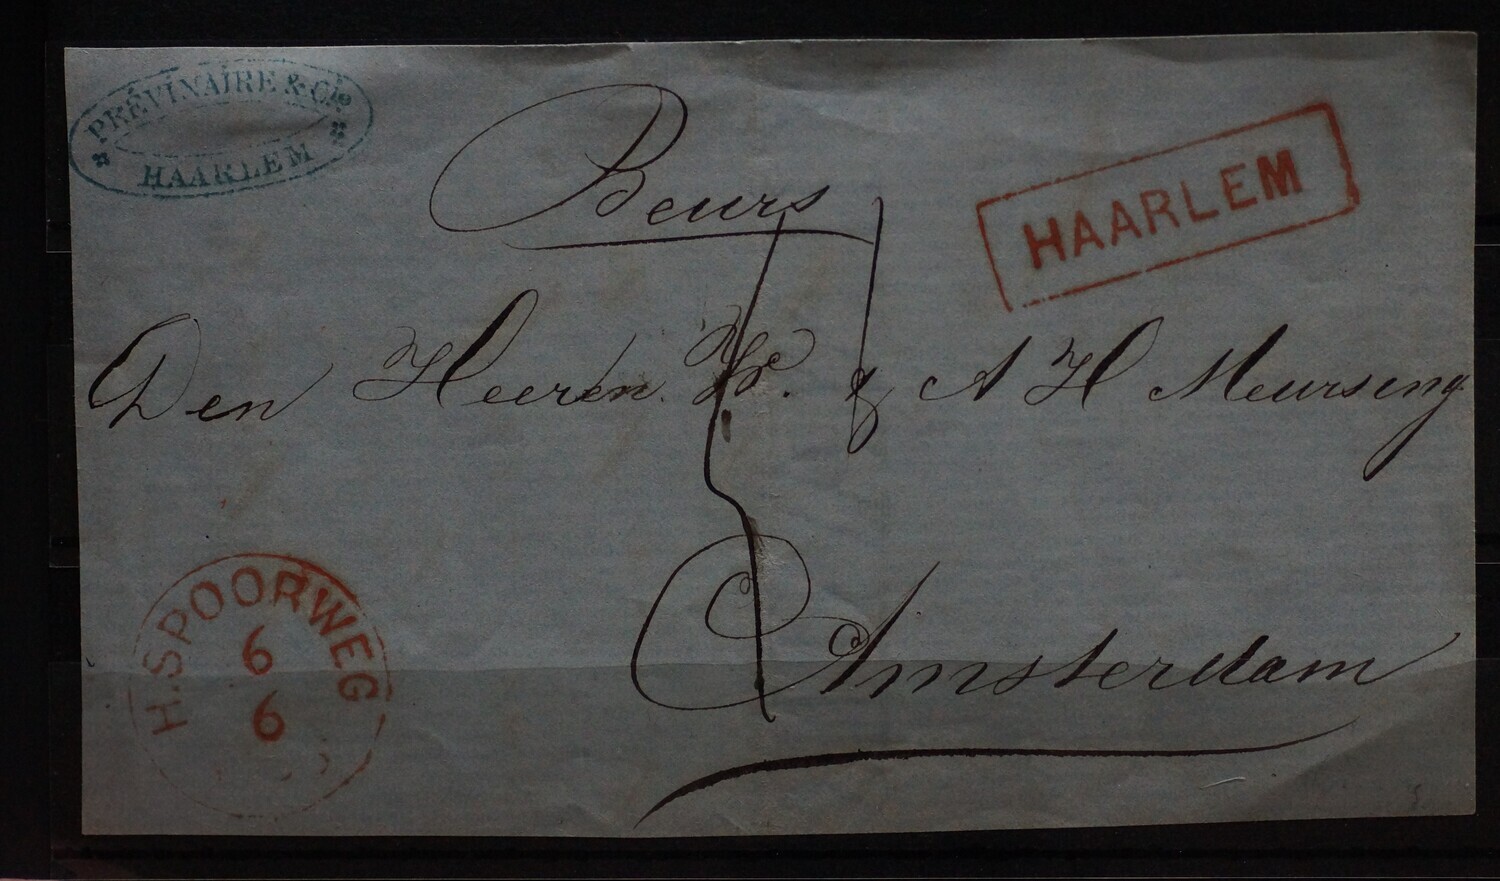 PRÉVINAIRE & Cie
HAARLEM
Beurs
HAARLEM
Den Heeren W. & A H Meursing
Amsterdam
H.SPOORWEG
6
6